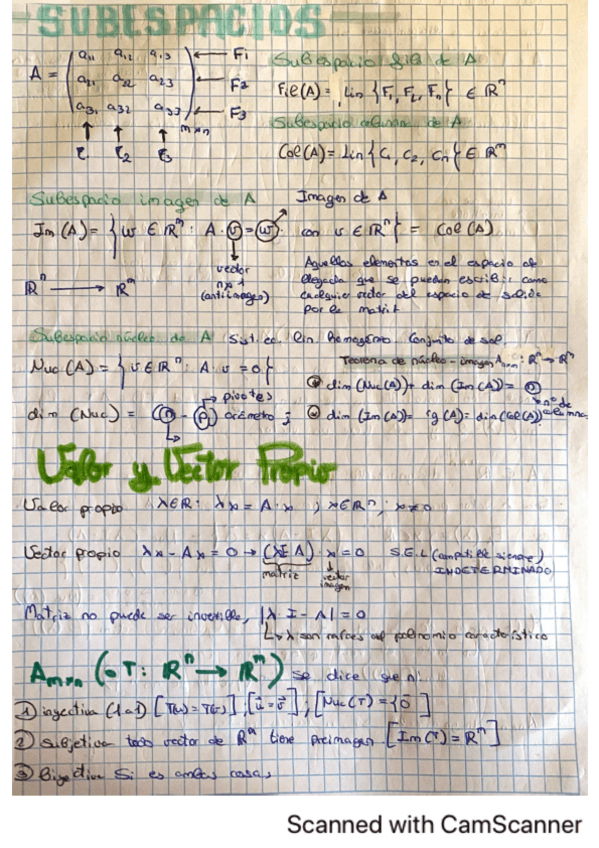 SUBESPACIOS
A = ( a11 a12 a13 ← F1
a21 a22 a23 ← F2
a31 a32 a33 ) m×n ← F3
↑ ↑ ↑
C1 C2 C3
Subespacio fila de A
Fil(A) = Lin { F1, F2, Fn } ∈ ℝⁿ
Subespacio columna de A
Col(A) = Lin { C1, C2, Cn } ∈ ℝᵐ
Subespacio imagen de A
Imagen de A
Im (A) = { w ∈ ℝᵐ : A · v = w con v ∈ ℝⁿ } = Col (A)
vector
n×1
(antiimagen)
ℝⁿ → ℝᵐ
Aquellos elementos en el espacio de
llegada que se pueden escribir como
cualquier vector del espacio de salida
por la matriz
Subespacio núcleo de A Sist. ec. lin. Homogéneo Conjunto de sol.
Nuc (A) = { v ∈ ℝⁿ : A · v = 0 }
Teorema de núcleo - imagen Am×n : ℝⁿ → ℝᵐ
dim (Nuc(A)) + dim (Im(A)) = n
nº de columna
pivotes
dim (Nuc) = (n - p)
dim (Im(A)) = rg (A) = dim (Col(A))
Valor y Vector Propio
Valor propio λ ∈ ℝ : λx = A · x ; x ∈ ℝⁿ ; x ≠ 0
Vector propio λx - Ax = 0 → (λI - A) · x = 0 S.E.L (compatible siempre)
INDETERMINADO
matriz vector imagen
Matriz no puede ser invertible, |λ I - A| = 0
↳ λ son raíces del polinomio característico
Am×n (o T: ℝⁿ → ℝᵐ) se dice que:
① inyectiva (1 a 1) [T(u) = T(v)], [u = v], [Nuc (T) = {0}]
② subjetiva todo vector de ℝᵐ tiene preimagen [Im (T) = ℝᵐ]
③ Biyectiva Si es ambas cosas
Scanned with CamScanner